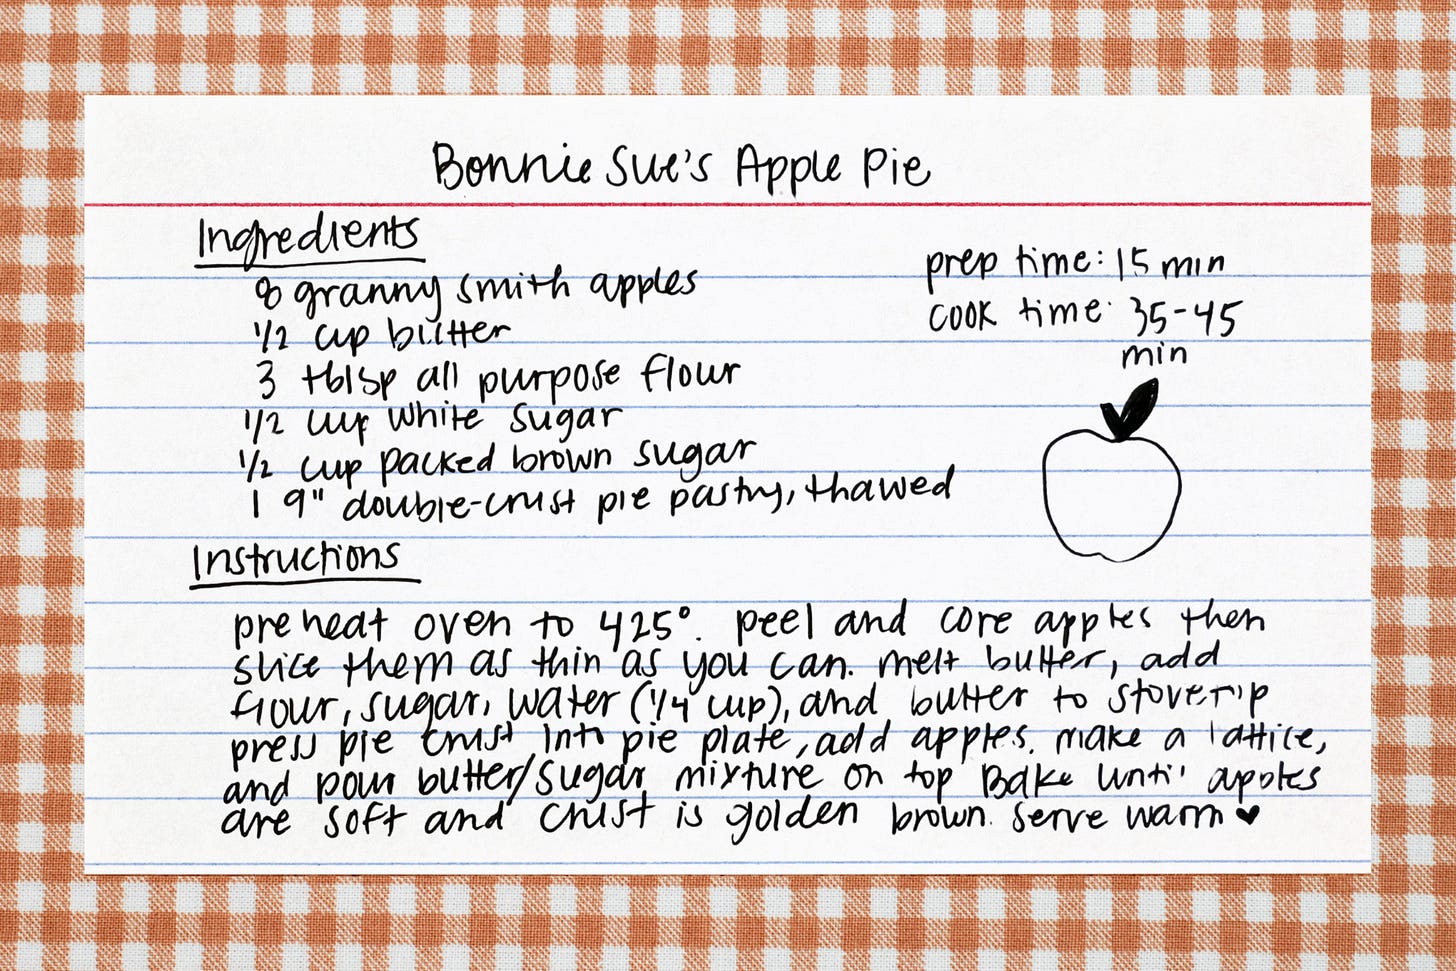 Bonnie Sue's Apple Pie
Ingredients
8 granny smith apples
1/2 cup butter
3 tblsp all purpose flour
1/2 cup white sugar
1/2 cup packed brown sugar
1 9" double-crust pie pastry, thawed
prep time: 15 min
cook time: 35-45
min
Instructions
preheat oven to 425°. peel and core apples then
slice them as thin as you can. melt butter, add
flour, sugar, water (1/4 cup), and butter to stovetop
press pie crust into pie plate, add apples. make a lattice,
and pour butter/sugar mixture on top Bake until apples
are soft and crust is golden brown. serve warm ♥